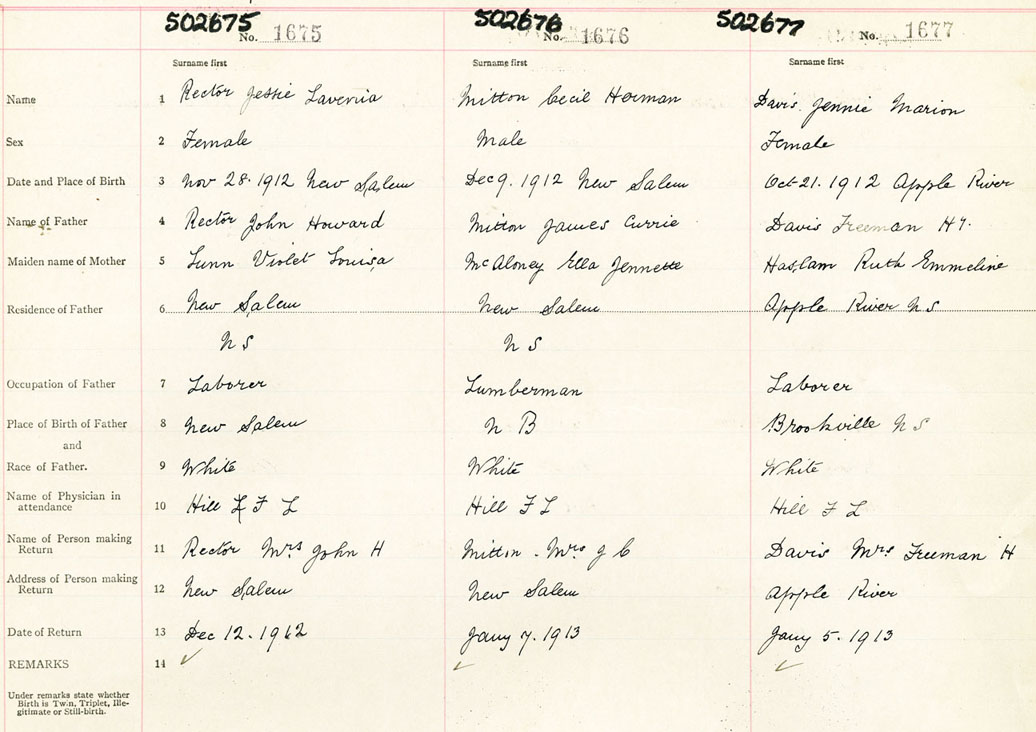 502675 No. 1675 502676 No. 1676 502677 No. 1677
Surname first Surname first Surname first
Name 1 Rector Jessie Lavenia Mitton Cecil Herman Davis Jennie Marion
Sex 2 Female Male Female
Date and Place of Birth 3 Nov 28. 1912 New Salem Dec 9. 1912 New Salem Oct-21. 1912 Apple River
Name of Father 4 Rector John Howard Mitton James Currie Davis Freeman Hy.
Maiden name of Mother 5 Lunn Violet Louisa McAloney Ella Jennette Haslam Ruth Emmeline
Residence of Father 6 New Salem New Salem Apple River N S
N S N S
Occupation of Father 7 Laborer Lumberman Laborer
Place of Birth of Father 8 New Salem N B Brookville N S
and
Race of Father. 9 White White White
Name of Physician in
attendance 10 Hill F L Hill F L Hill F L
Name of Person making
Return 11 Rector Mrs John H Mitton. Mrs J C Davis Mrs Freeman H
Address of Person making
Return 12 New Salem New Salem Apple River
Date of Return 13 Dec 12. 1912 Jany 7. 1913 Jany 5. 1913
REMARKS 14 ✓ ✓ ✓
Under remarks state whether
Birth is Twin, Triplet, Ille-
gitimate or Still-birth.